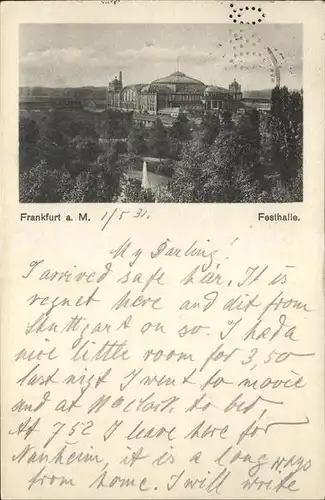 Frankfurt a. M. 1/5 31. Festhalle.
My Darling!
I arrived safe här. It is
regnet here and dit from
Stuttgart on so. I had a
nice little room for 3,50
last nigt I went to movie
and at 11 o'clock. to bed
At 7 52 I leave here for
Manheim, it is a long ways
from home. I will write